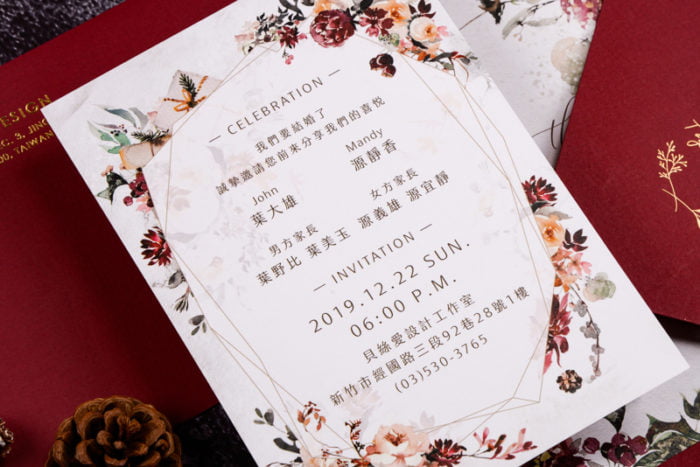 — CELEBRATION —
我們要結婚了
誠摯邀請您前來分享我們的喜悅
John Mandy
葉大雄 源靜香
男方家長 女方家長
葉野比 葉美玉 源義雄 源宜靜
— INVITATION —
2019.12.22 SUN.
06:00 P.M.
貝絲愛設計工作室
新竹市經國路三段92巷28號1樓
(03)530-3765
ESIGN
TAIWAN